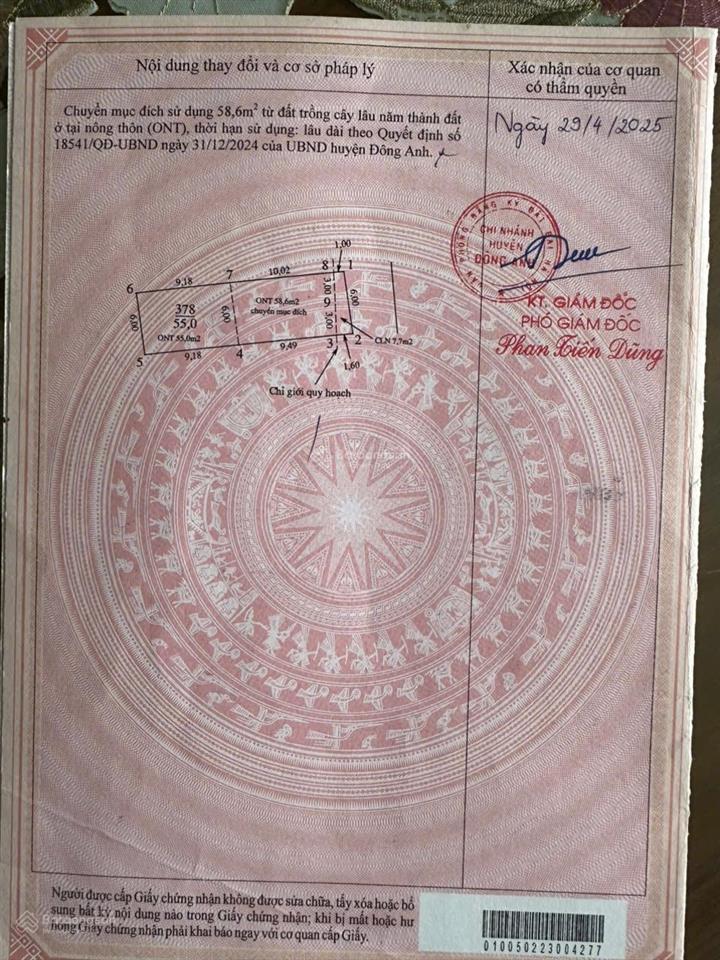 Nội dung thay đổi và cơ sở pháp lý
Xác nhận của cơ quan
có thẩm quyền
Chuyển mục đích sử dụng 58,6m² từ đất trồng cây lâu năm thành đất
ở tại nông thôn (ONT), thời hạn sử dụng: lâu dài theo Quyết định số
18541/QĐ-UBND ngày 31/12/2024 của UBND huyện Đông Anh.
Ngày 29/4/2025
CHI NHÁNH
HUYỆN
ĐÔNG ANH
KT. GIÁM ĐỐC
PHÓ GIÁM ĐỐC
Phan Tiến Dũng
1,00
6 9,18 7 10,02 8 1
6,00 378 6,00 ONT 58,6m2 3,00 6,00
55,0 chuyển mục đích 9
ONT 55,0m2 3,00 CLN 7,7m2
5 9,18 4 9,49 3 2
1,60
Chỉ giới quy hoạch
Batdongsan
Người được cấp Giấy chứng nhận không được sửa chữa, tẩy xóa hoặc bổ
sung bất kỳ nội dung nào trong Giấy chứng nhận; khi bị mất hoặc hư
hỏng Giấy chứng nhận phải khai báo ngay với cơ quan cấp Giấy.
010050223004277